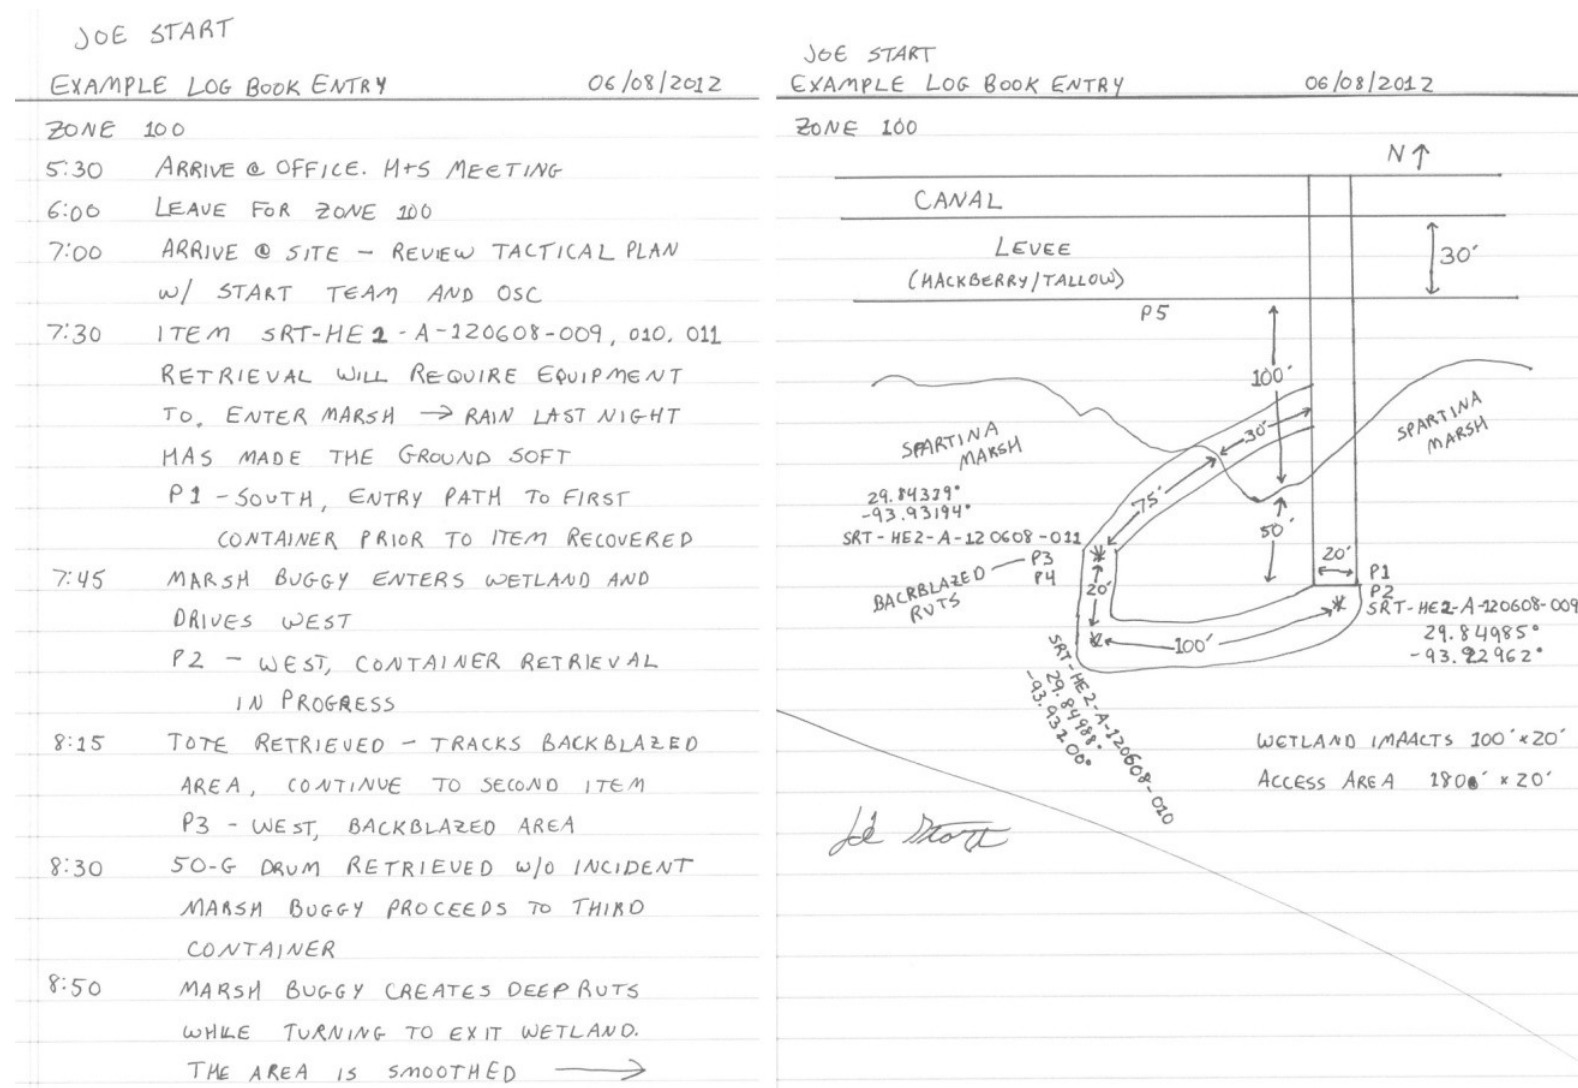 JOE START
EXAMPLE LOG BOOK ENTRY 06/08/2012
ZONE 100
5:30 ARRIVE @ OFFICE. H+S MEETING
6:00 LEAVE FOR ZONE 100
7:00 ARRIVE @ SITE - REVIEW TACTICAL PLAN
W/ START TEAM AND OSC
7:30 ITEM SRT-HE2-A-120608-009, 010, 011
RETRIEVAL WILL REQUIRE EQUIPMENT
TO. ENTER MARSH → RAIN LAST NIGHT
HAS MADE THE GROUND SOFT
P1 - SOUTH, ENTRY PATH TO FIRST
CONTAINER PRIOR TO ITEM RECOVERED
7:45 MARSH BUGGY ENTERS WETLAND AND
DRIVES WEST
P2 - WEST, CONTAINER RETRIEVAL
IN PROGRESS
8:15 TOTE RETRIEVED - TRACKS BACKBLAZED
AREA, CONTINUE TO SECOND ITEM
P3 - WEST, BACKBLAZED AREA
8:30 50-G DRUM RETRIEVED W/O INCIDENT
MARSH BUGGY PROCEEDS TO THIRD
CONTAINER
8:50 MARSH BUGGY CREATES DEEP RUTS
WHILE TURNING TO EXIT WETLAND.
THE AREA IS SMOOTHED →
JOE START
EXAMPLE LOG BOOK ENTRY 06/08/2012
ZONE 100
N ↑
CANAL
LEVEE
(HACKBERRY/TALLOW)
30'
P5
100'
30'
SPARTINA
MARSH
SPARTINA
MARSH
75'
50'
29.84379°
-93.93194°
SRT-HE2-A-120608-011
P3
P4
BACKBLAZED
RUTS
20'
20'
P1
P2
SRT-HE2-A-120608-009
29.84985°
-93.92962°
100'
SRT-HE2-A-120608-010
29.84988°
-93.93200°
WETLAND IMPAACTS 100' x 20'
ACCESS AREA 180' x 20'
Joe Start